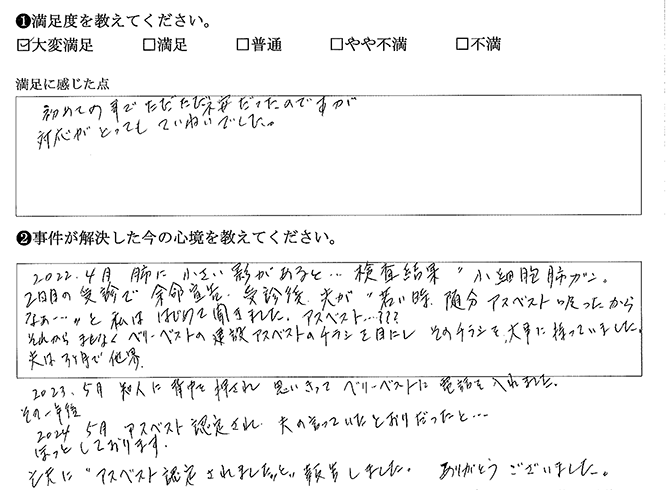 ❶満足度を教えてください。
☑大変満足 □満足 □普通 □やや不満 □不満
満足に感じた点
初めての事でただただ不安だったのですが
対応がとってもていねいでした。
❷事件が解決した今の心境を教えてください。
2022.4月 肺に小さい影があると… 検査結果"小細胞肺ガン。
2回目の受診で余命宣告、受診後、夫が"若い時、随分アスベスト吸ったから
なぁ…"と私ははじめて聞きました。アスベスト…???
それからまもなくベリーベストの建設アスベストのチラシを目にし そのチラシを大事に持っていました。
夫は3ヶ月で他界、
2023.5月 知人に背中を押され 思いきって ベリーベストに電話を入れました。
その一年後
2024 5月 アスベスト認定され、夫の言っていたとおりだったと…
ほっとしております。
夫に"アスベスト認定されました"と報告しました。 ありがとうございました。